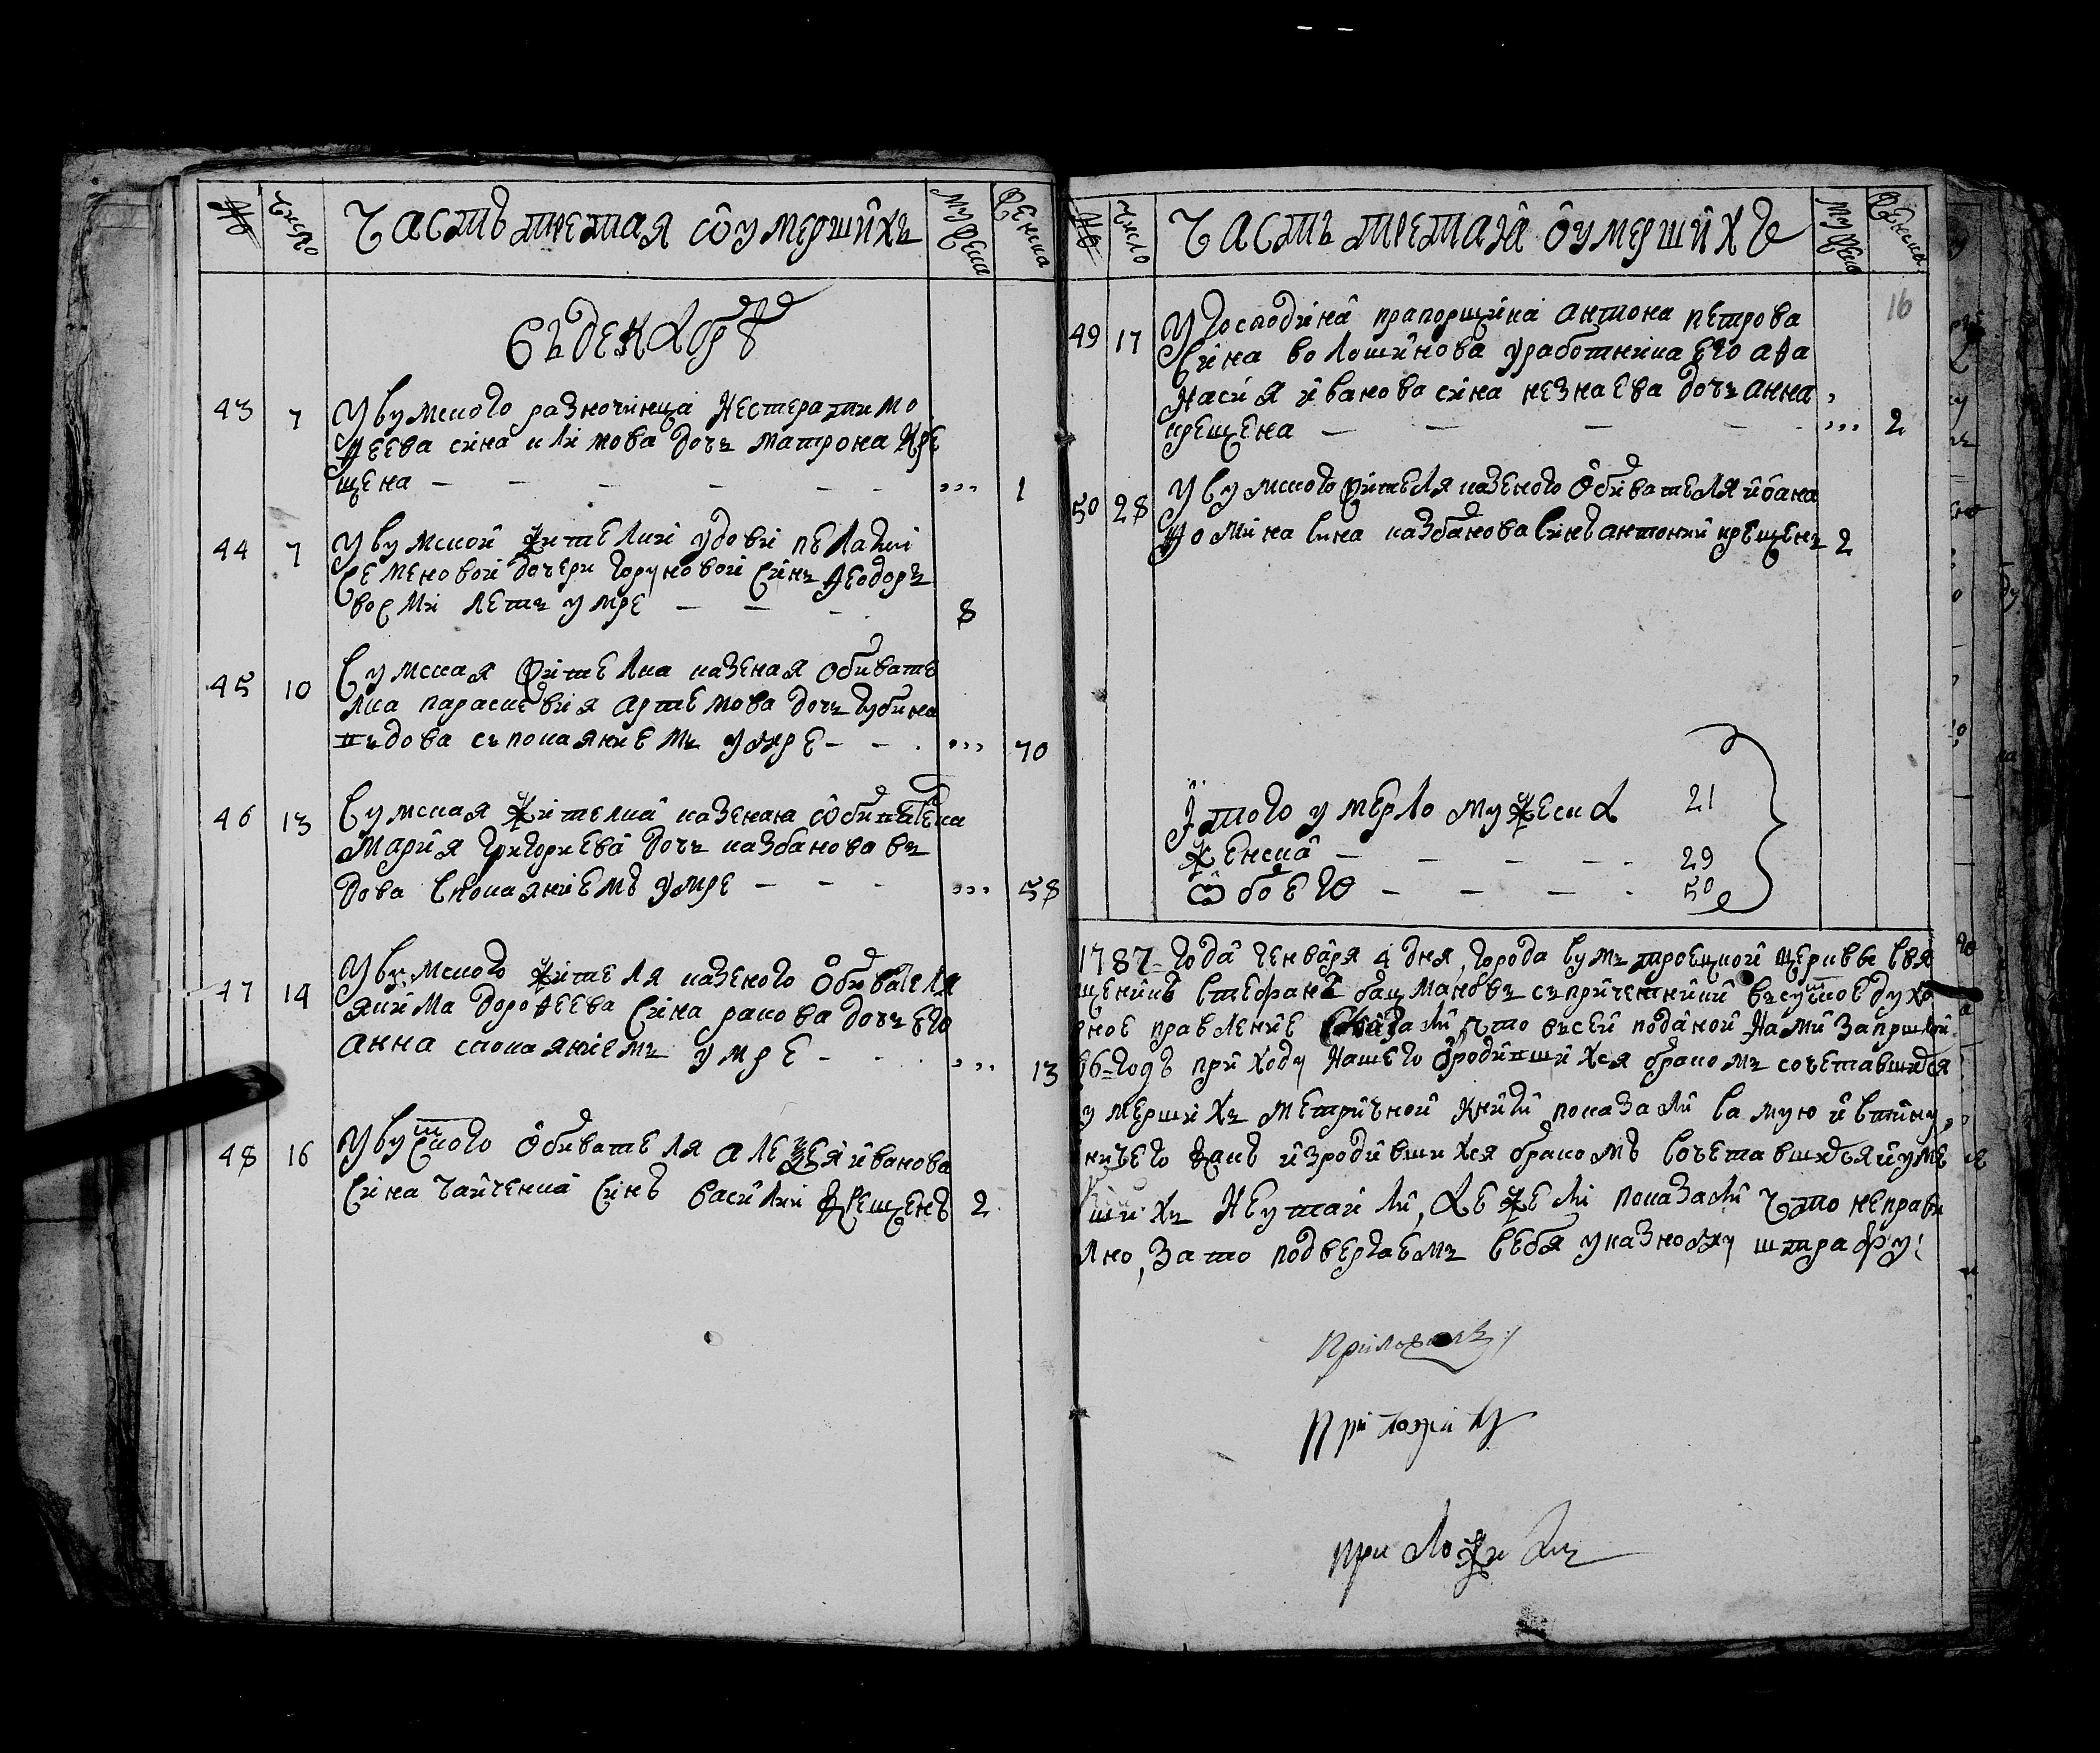 № число Часть третая ѡ умершихъ мужеска женска
въ декабрѣ
43 7 У сумского разночинца Нестера тимо
ѳеева сина климова дочъ матрона кре
щена — — — — — — ,,, 1
44 7 У сумской жителки удови пелагии
Семеновой дочери горуновой синъ ѳеодоръ
восми летъ умре — — — 8
45 10 Сумская жителка казеная обивате
лка параскевия артемова дочъ губина
въдова съ покаяниемъ умре — — ,,, 70
46 13 Сумская жителка казеная ѡбивателка
Мария григориева дочъ казбанова въ
дова спокаяниемъ умре — — — ,,, 58
47 14 У сумского жителя казеного обивателя
якима дороѳеева сина ракова дочъ его
анна спокаяниемъ умре — — ,,, 13
48 16 У сумского обивателя алеѯея иванова
сина чайченка синъ василий крещенъ 2
№ число Часть третая о умершихъ мужеска женска
16
49 17 У господина прапорщика антона петрова
сина волошинова у работника его аѳа
насия иванова сина незнаева дочъ анна
крещена — — — — ,,, 2
50 28 У сумского жителя казеного обивателя ивана
ѳомина сина казбанова синъ антоний крещенъ 2
Итого умерло мужеска 21
женска — — — — — 29
ѡбоего — — — — 50
1787 года генваря 4 дня, города сумъ троецкой церкви свя
щеникъ стефанъ бацмановъ съ причетники въ сумское духо
вное правление сказали, что въ сей поданой нами за прошлой
86 годъ приходу нашего о родившихся бракомъ сочетавшихся
умершихъ метричной книги показали самую истину,
ничего какъ изъ родившихся бракомъ сочетавшихся и уме
ршихъ неутаили, а ежели показали что неправи
лно, за то подвергаемъ себя указному штрафу: